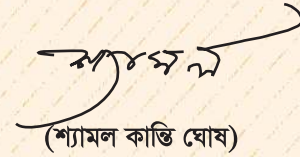 শ্যামল
(শ্যামল কান্তি ঘোষ)